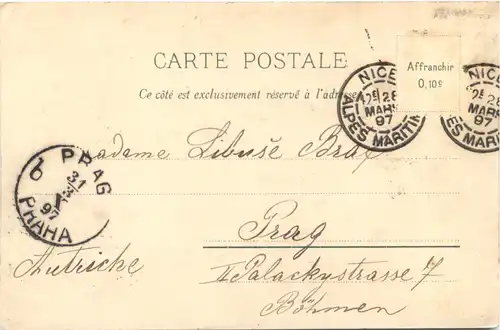 CARTE POSTALE
Ce côté est exclusivement réservé à l'adresse
Affranchir
0,10c
NICE
28
MARS
97
ALPES MARITIM
NICE
28
MARS
97
ES MARITIM
PRAG
31
97
PRAHA
6
Madame Libuše Bráf
Prag
II Palackystrasse 7
Böhmen
Autriche